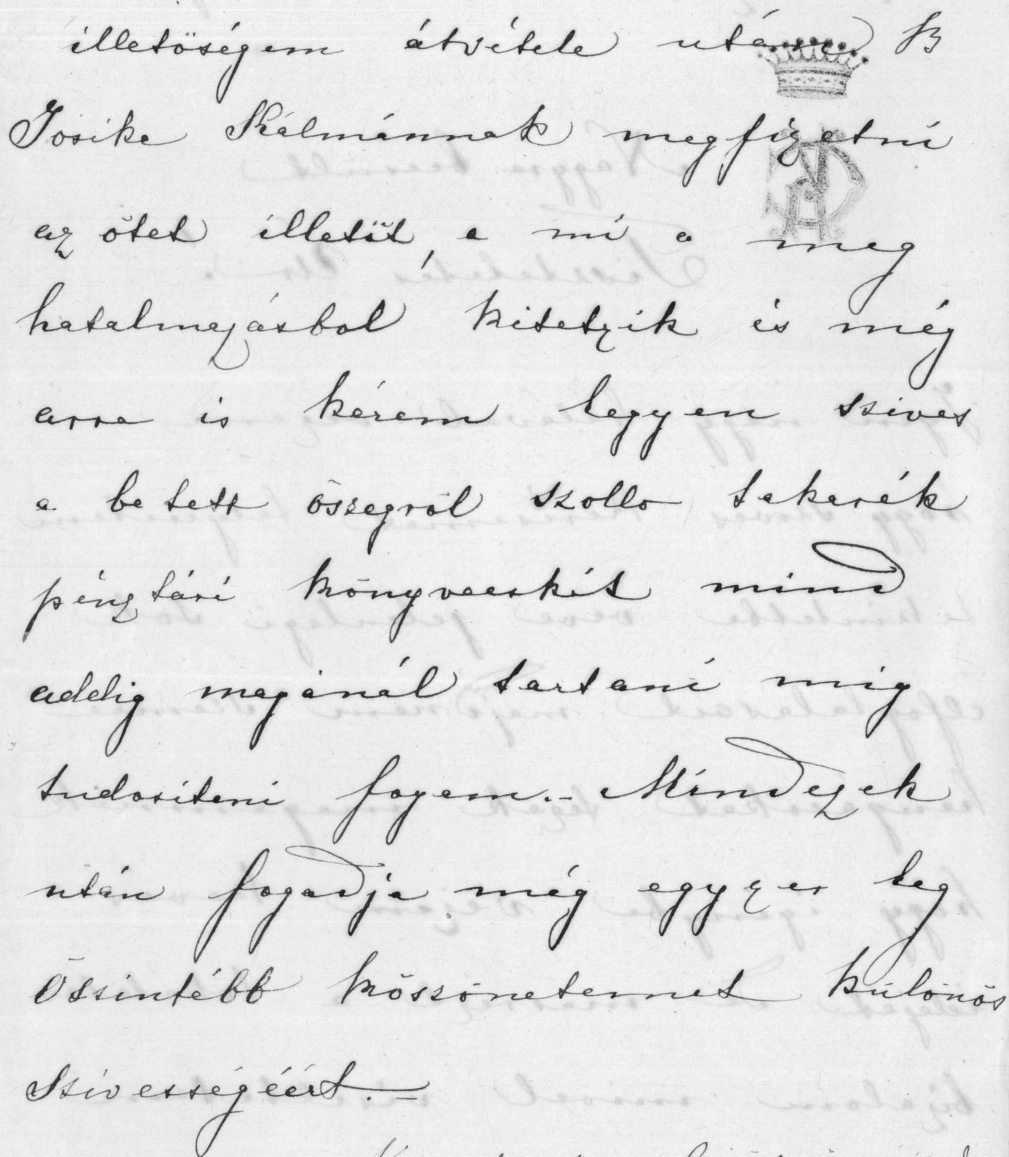 illetőségem átvételeután B
Josika Kálmánnak megfizetni
az őtet illetőt, a mi a meg
hatalmazásbol kitetzik és még
arra is kérem legyen szives
a betett összegröl szollo takarék
pénztári könyvecskét mind
addig magánál tartani mig
tudositeni fogom.- Mindezek
után fogadja még egyzer leg
őszintébb köszönetemet különös
szivességéért.-